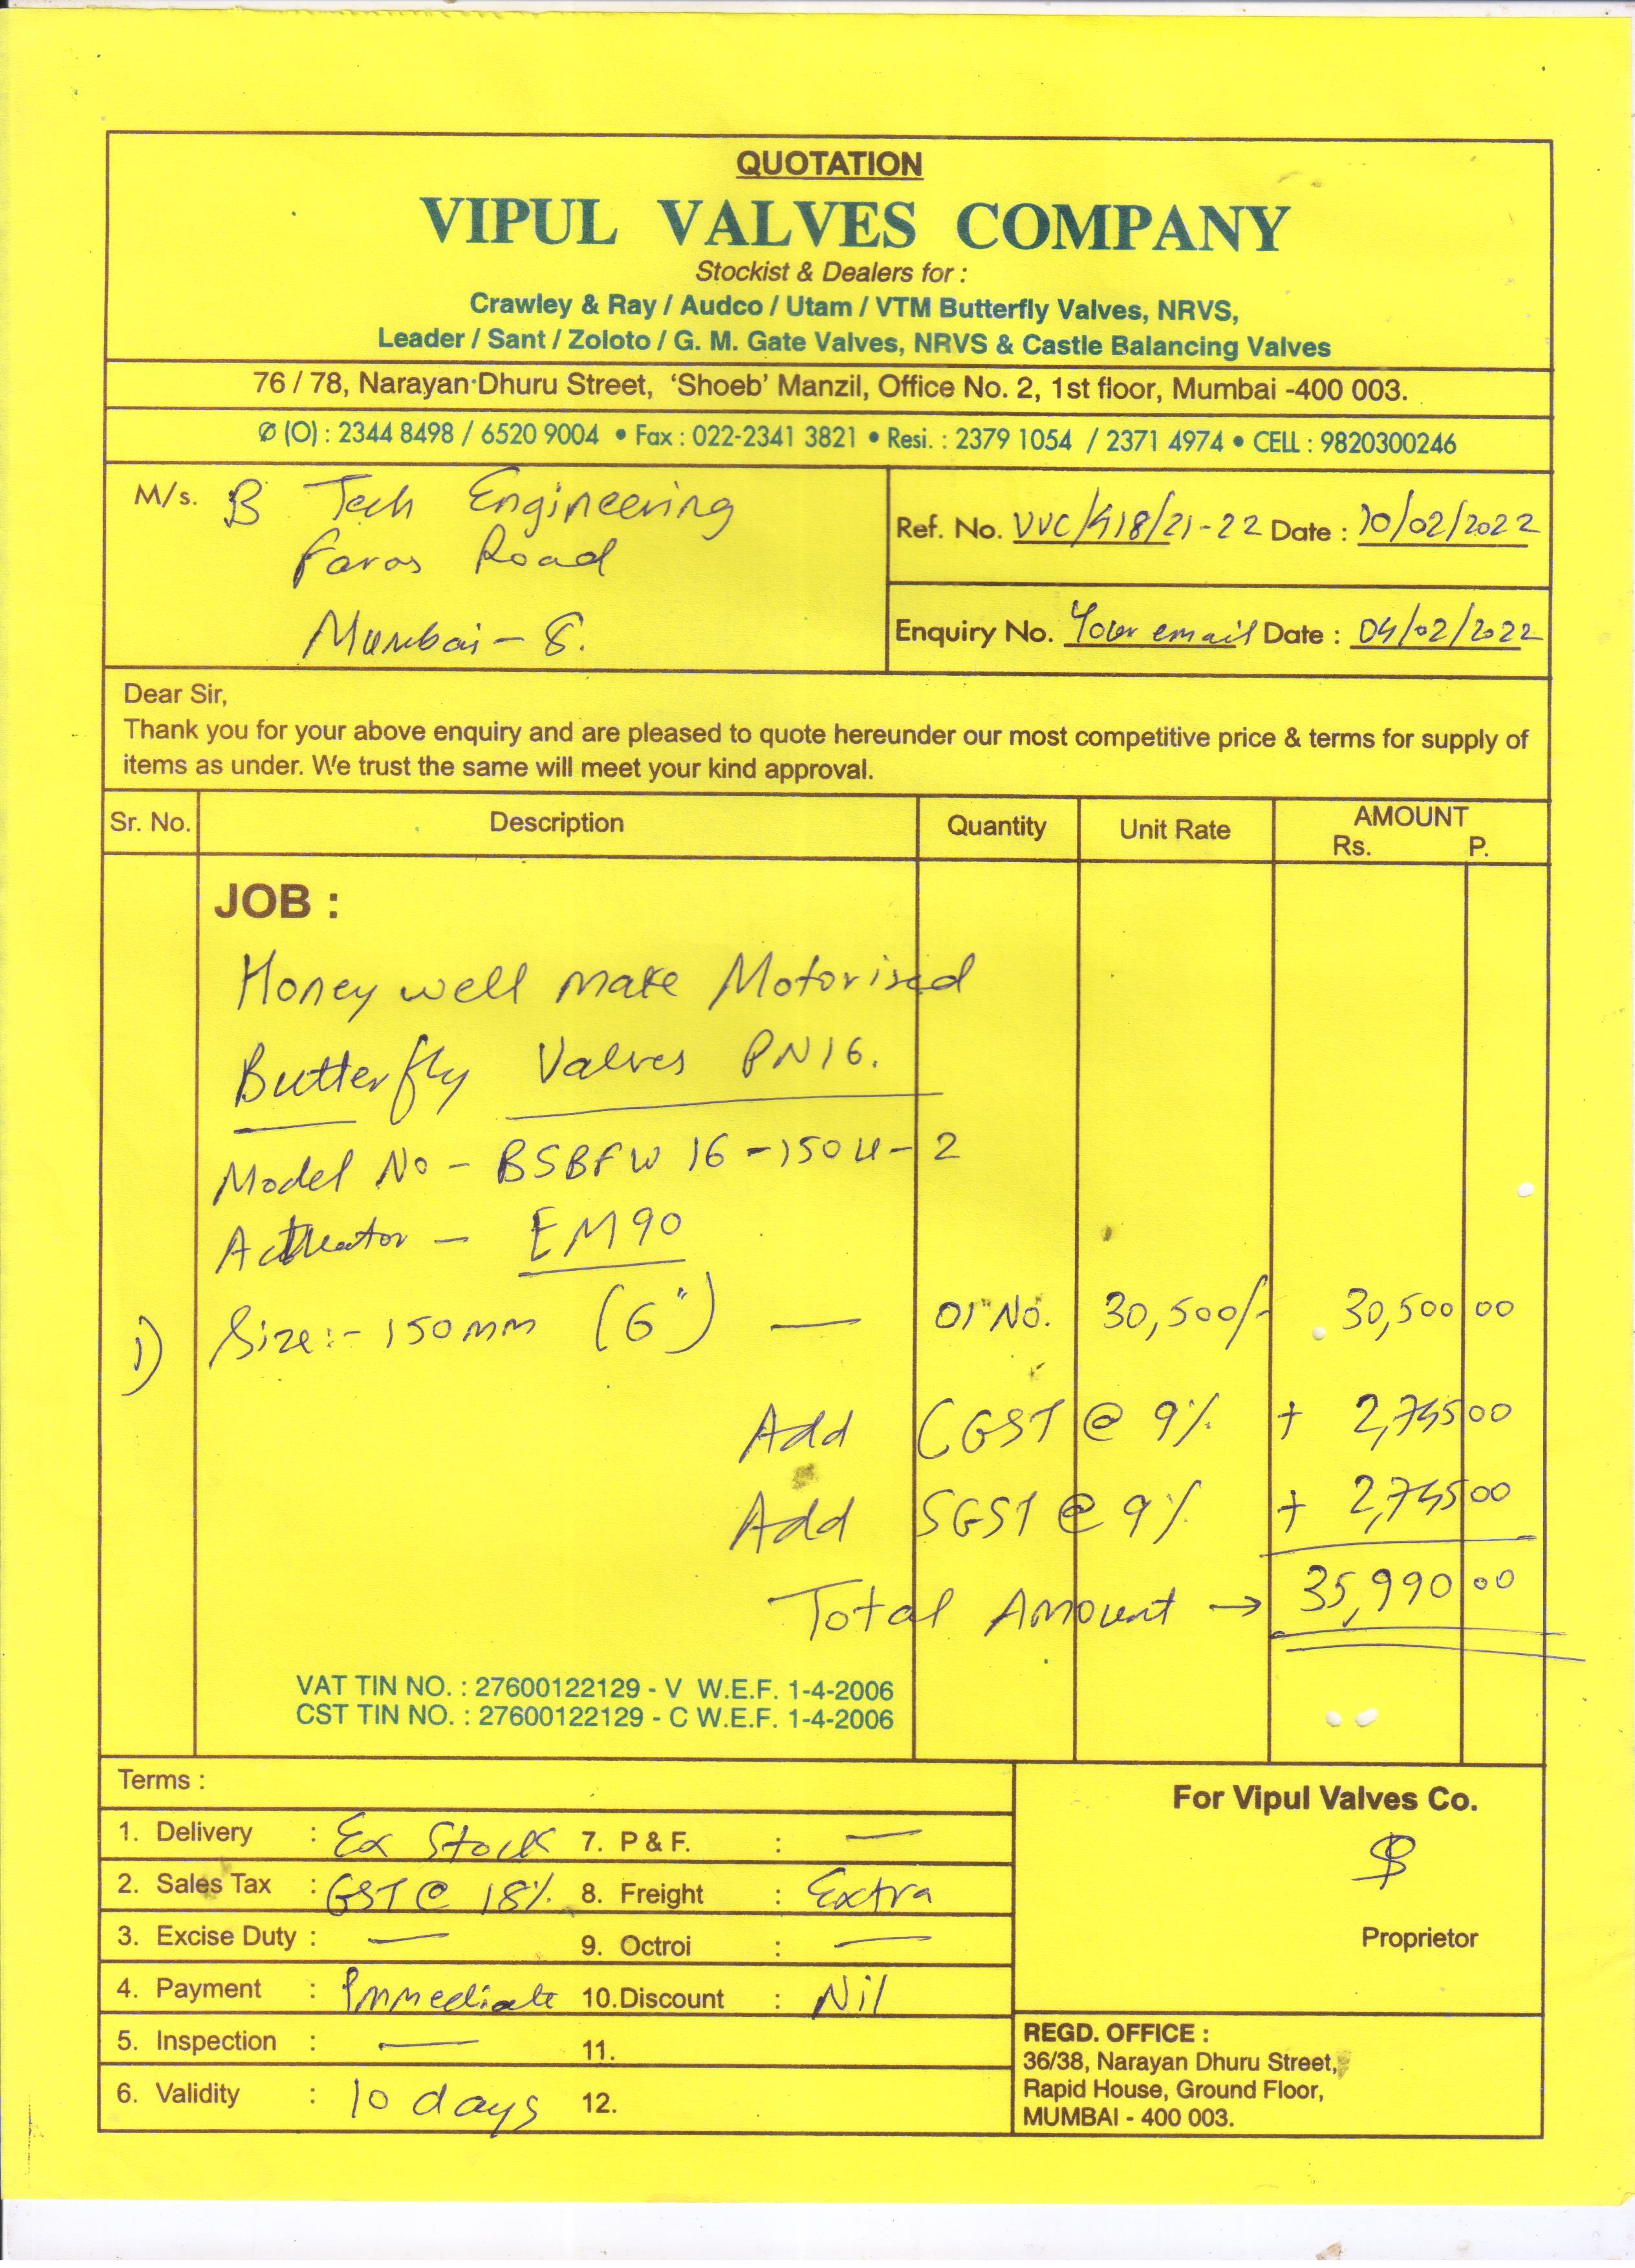 QUOTATION
VIPUL VALVES COMPANY
Stockist & Dealers for :
Crawley & Ray / Audco / Utam / VTM Butterfly Valves, NRVS,
Leader / Sant / Zoloto / G. M. Gate Valves, NRVS & Castle Balancing Valves
76 / 78, Narayan Dhuru Street, 'Shoeb' Manzil, Office No. 2, 1st floor, Mumbai -400 003.
✆ (O) : 2344 8498 / 6520 9004 • Fax : 022-2341 3821 • Resi. : 2379 1054 / 2371 4974 • CELL : 9820300246
M/s. B Tech Engineering
Faras Road
Mumbai - 8.
Ref. No. VVC/418/21-22 Date : 10/02/2022
Enquiry No. Your email Date : 04/02/2022
Dear Sir,
Thank you for your above enquiry and are pleased to quote hereunder our most competitive price & terms for supply of
items as under. We trust the same will meet your kind approval.
Sr. No. Description Quantity Unit Rate AMOUNT
Rs. P.
JOB :
Honeywell make Motorised
Butterfly Valves PN16.
Model No - BSBFW 16-150U-2
Actuator - EM90
1) Size:- 150mm (6") — 01 No. 30,500/- 30,500 00
Add CGST @ 9% + 2,745 00
Add SGST @ 9% + 2,745 00
Total Amount → 35,990 00
VAT TIN NO. : 27600122129 - V W.E.F. 1-4-2006
CST TIN NO. : 27600122129 - C W.E.F. 1-4-2006
Terms :
1. Delivery : Ex Stock 7. P & F. : —
2. Sales Tax : GST @ 18% 8. Freight : Extra
3. Excise Duty : — 9. Octroi : —
4. Payment : Immediate 10.Discount : Nil
5. Inspection : — 11.
6. Validity : 10 days 12.
For Vipul Valves Co.
Proprietor
REGD. OFFICE :
36/38, Narayan Dhuru Street,
Rapid House, Ground Floor,
MUMBAI - 400 003.